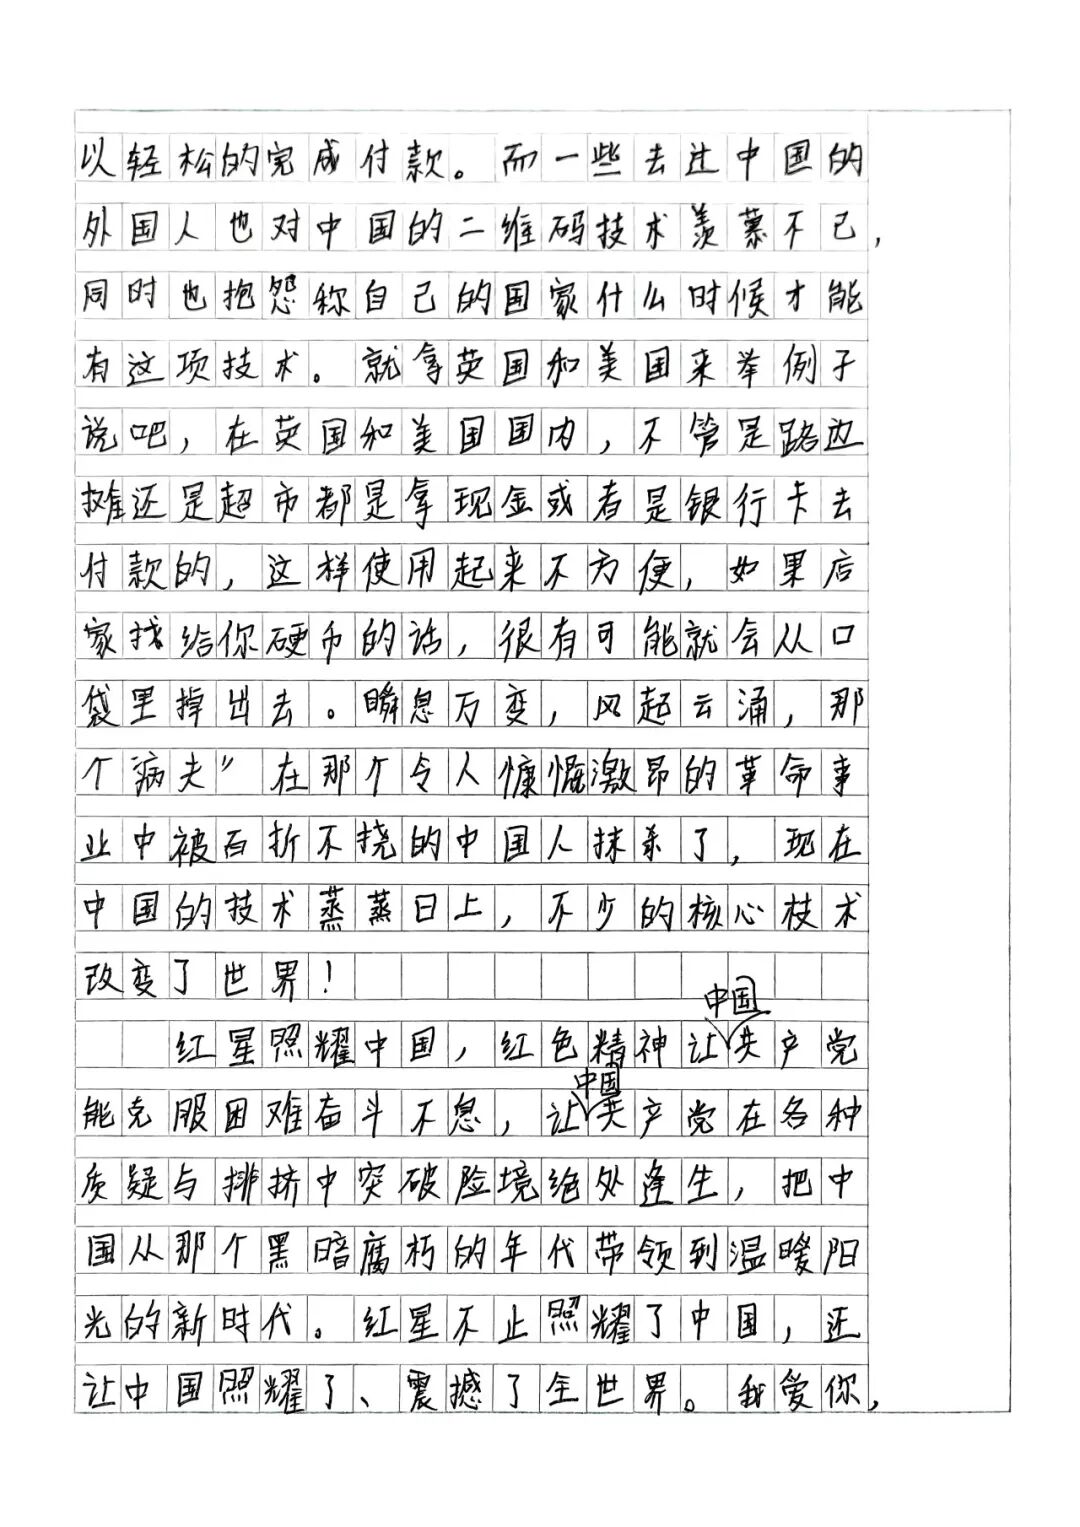 以轻松的完成付款。而一些去过中国的
外国人也对中国的二维码技术羡慕不已,
同时也抱怨称自己的国家什么时候才能
有这项技术。就拿英国和美国来举例子
说吧,在英国和美国国内,不管是路边
摊还是超市都是拿现金或者是银行卡去
付款的,这样使用起来不方便,如果店
家找给你硬币的话,很有可能就会从口
袋里掉出去。瞬息万变,风起云涌,那
个“病夫”在那个令人慷慨激昂的革命事
业中被百折不挠的中国人抹杀了,现在
中国的技术蒸蒸日上,不少的核心技术
改变了世界!
红星照耀中国,红色精神让中国共产党
能克服困难奋斗不息,让中国共产党在各种
质疑与排挤中突破险境绝处逢生,把中
国从那个黑暗腐朽的年代带领到温暖阳
光的新时代。红星不止照耀了中国,还
让中国照耀了、震撼了全世界。我爱你,